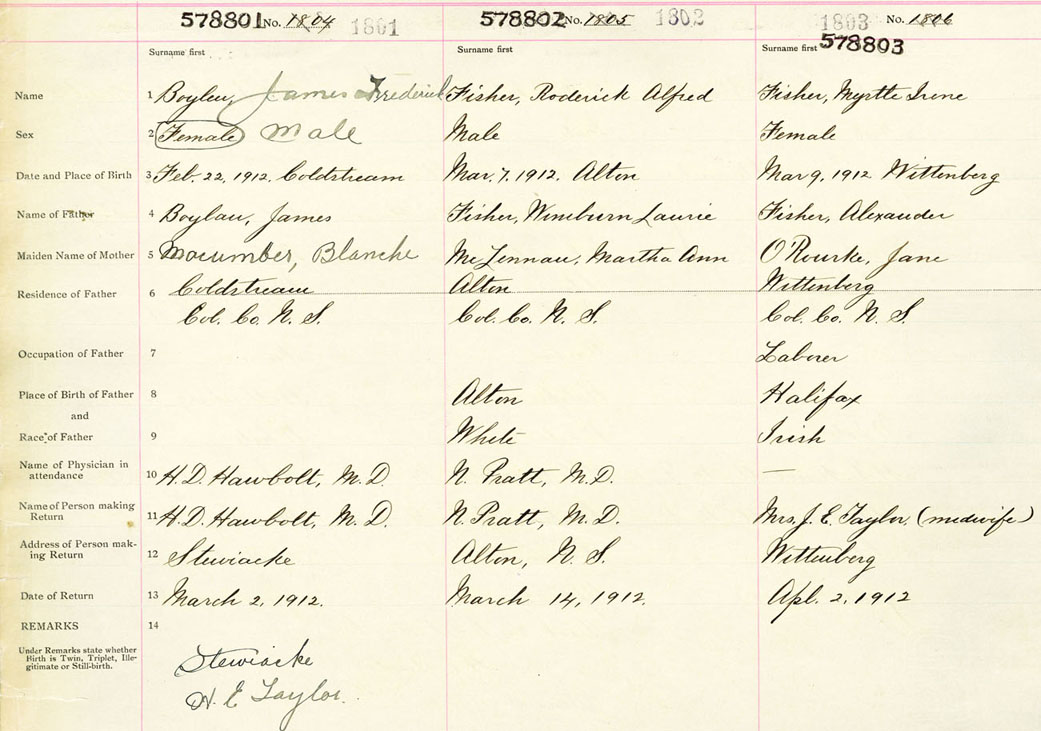 578801 No. 1804 1801 578802 No. 1805 1802 1803 No. 1806
578803
Surname first Surname first Surname first
Name 1 Boylen, James Frederick Fisher, Roderick Alfred Fisher, Myrtle Irene
Sex 2 Female Male Male Female
Date and Place of Birth 3 Feb. 22, 1912. Coldstream Mar. 7. 1912. Alton Mar 9, 1912 Wittenberg
Name of Father 4 Boylau, James Fisher, Wineburn Laurie Fisher, Alexander
Maiden Name of Mother 5 Macumber, Blanche McLennan, Martha Ann O'Rourke, Jane
Residence of Father 6 Coldstream Alton Wittenberg
Col. Co. N. S. Col. Co. N. S. Col. Co. N. S.
Occupation of Father 7 Laborer
Place of Birth of Father 8 Alton Halifax
and
Race of Father 9 White Irish
Name of Physician in
attendance 10 H. D. Hawbolt, M. D. N. Pratt, M. D. —
Name of Person making
Return 11 H. D. Hawbolt, M. D. N. Pratt, M. D. Mrs. J. E. Taylor, (medwife)
Address of Person mak-
ing Return 12 Stewiacke Alton, N. S. Wittenberg
Date of Return 13 March 2, 1912. March 14, 1912. Apl. 2, 1912
REMARKS 14
Under Remarks state whether
Birth is Twin, Triplet, Ille-
gitimate or Still-birth.
Stewiacke
H. E Taylor.